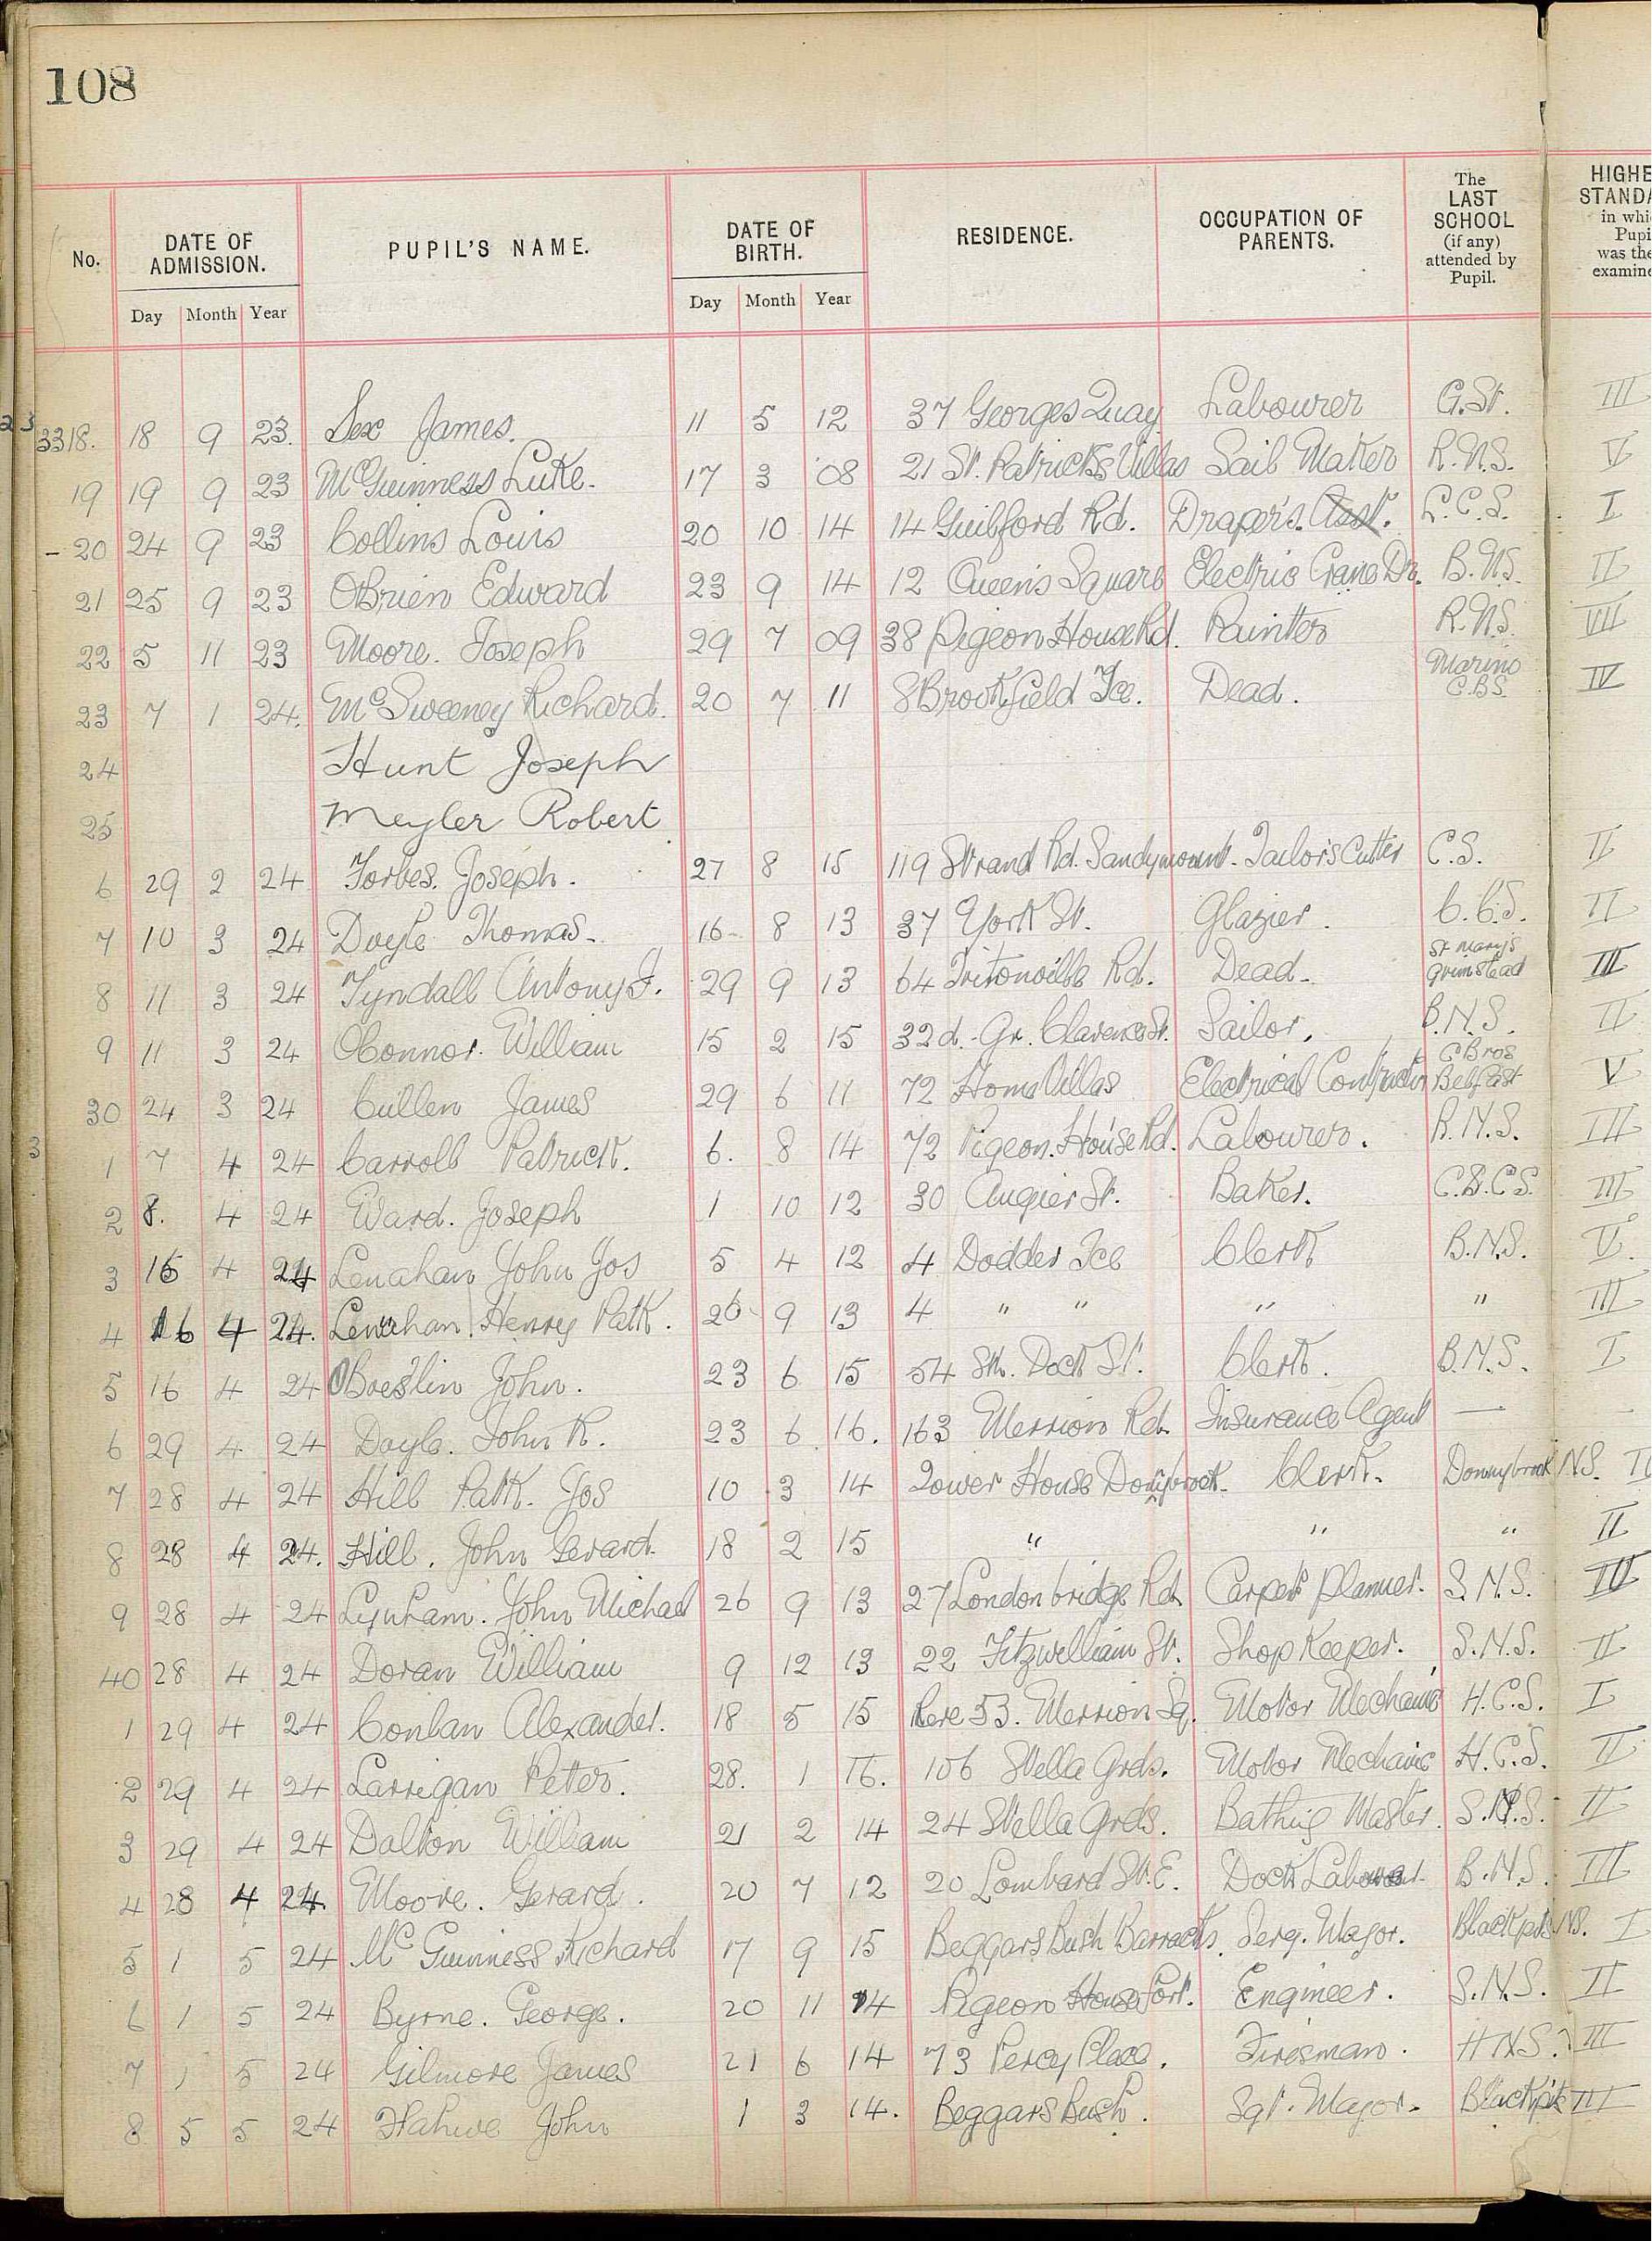 108
No. DATE OF ADMISSION. PUPIL'S NAME. DATE OF BIRTH. RESIDENCE. OCCUPATION OF PARENTS. The LAST SCHOOL (if any) attended by Pupil. HIGHE STANDA in whi Pupi was the examine
Day Month Year Day Month Year
3318. 18 9 23. Sex James. 11 5 12 37 Georges Quay Labourer G.St. III
19 19 9 23 McGuinness Luke. 17 3 08 21 St. Patricks Villas Sail Maker R.N.S. V
- 20 24 9 23 Collins Louis 20 10 14 14 Guilford Rd. Draper's Asst. L.C.S. I
21 25 9 23 OBrien Edward 23 9 14 12 Queen's Square Electric Crane Dr. B.N.S. II
22 5 11 23 Moore. Joseph 29 7 09 38 Pigeon House Rd. Painter R.N.S. VII
23 7 1 24. McSweeney Richard. 20 7 11 8 Brookfield Tce. Dead. Marino C.B.S. IV
24 Hunt Joseph
25 Meyler Robert
6 29 2 24 Forbes. Joseph. 27 8 15 119 Strand Rd. Sandymount. Tailor's Cutter C.S. II
7 10 3 24 Doyle Thomas. 16 8 13 37 York St. Glazier. C.C.S. II
8 11 3 24 Tyndall Antony J. 29 9 13 64 Tritonville Rd. Dead. St Mary's Grimstead III
9 11 3 24 OConnor. William 15 2 15 32d. Gr. Clarence St. Sailor. B.N.S. II
30 24 3 24 Cullen James 29 6 11 72 Home Villas Electrical Contractor C Bros Belfast V
1 7 4 24 Carroll Patrick. 6. 8 14 72 Pigeon House Rd. Labourer. R.N.S. III
2 8. 4 24 Ward. Joseph 1 10 12 30 Augier St. Baker. C.B.C.S. III
3 16 4 24 Lenahan John Jos 5 4 12 4 Dodder Tce Clerk B.N.S. V.
4 16 4 24. Lenahan. Henry Patk. 26 9 13 4 " " " " III
5 16 4 24 OBreslin John. 23 6 15 54 Sth. Dock St. Clerk. B.N.S. I
6 29 4 24 Doyle. John R. 23 6 16. 163 Merrion Rd. Insurance Agent —
7 28 4 24 Hill Patk. Jos 10 3 14 Tower House Donnybrook. Clerk. Donnybrook N.S.
8 28 4 24. Hill. John Gerard. 18 2 15 " " " II
9 28 4 24 Lynham. John Michael 26 9 13 27 Londonbridge Rd. Carpet Planner. S.N.S. IV
40 28 4 24 Doran William 9 12 13 22 Fitzwilliam St. Shop Keeper. S.N.S. II
1 29 4 24 Conlan Alexander. 18 5 15 Rere 53. Merrion Sq. Motor Mechanic H.C.S. I
2 29 4 24 Larrigan Peter. 28. 1 16. 106 Stella Grds. Motor Mechanic H.C.S. II
3 29 4 24 Dalton William 21 2 14 24 Stella Grds. Bathing Master. S.N.S. II
4 28 4 24. Moore. Gerard. 20 7 12 20 Lombard St. E. Dock Labourer. B.N.S. III
5 1 5 24 Mc Guinness Richard 17 9 15 Beggars Bush Barracks. Serg. Major. Blackpits N.S. I
6 1 5 24 Byrne. George. 20 11 14 Pigeon House Fort. Engineer. S.N.S. II
7 1 5 24 Gilmore James 21 6 14 73 Percy Place. Firesman. H.N.S. III
8 5 5 24 John 1 3 14. Beggars Bush. Sgt. Major. Blackpits III